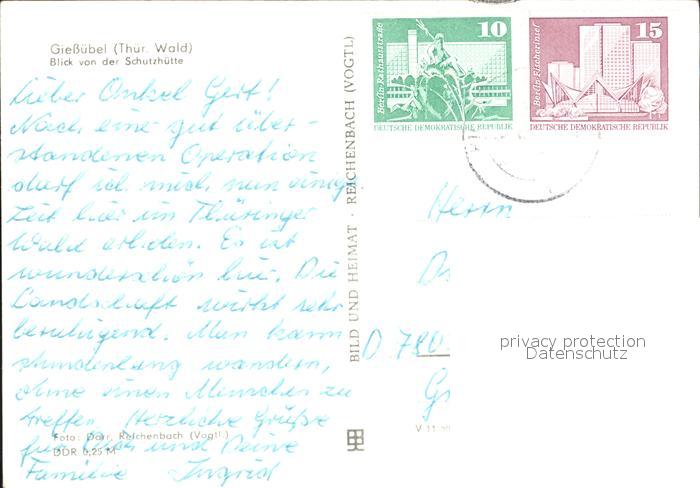 Gießübel (Thür. Wald)
Blick von der Schutzhütte
Lieber Onkel Gert!
Nach eine gut über-
standenen Operation
darf ich mich nun einige
Zeit hier im Thüringer
Wald erholen. Es ist
wunderschön hier. Die
Landschaft wirkt sehr
beruhigend. Man kann
stundenlang wandern,
ohne einen Menschen zu
treffen. Herzliche Grüße
für Dich und Deine
Familie Ingrid
Foto: Darr, Reichenbach (Vogtl.)
DDR 0,25 M
BILD UND HEIMAT · REICHENBACH (VOGTL)
10
Berlin-Rathausstraße
DEUTSCHE DEMOKRATISCHE REPUBLIK
15
Berlin-Fischerinsel
DEUTSCHE DEMOKRATISCHE REPUBLIK
Herrn
D 780
V 11
privacy protection
Datenschutz